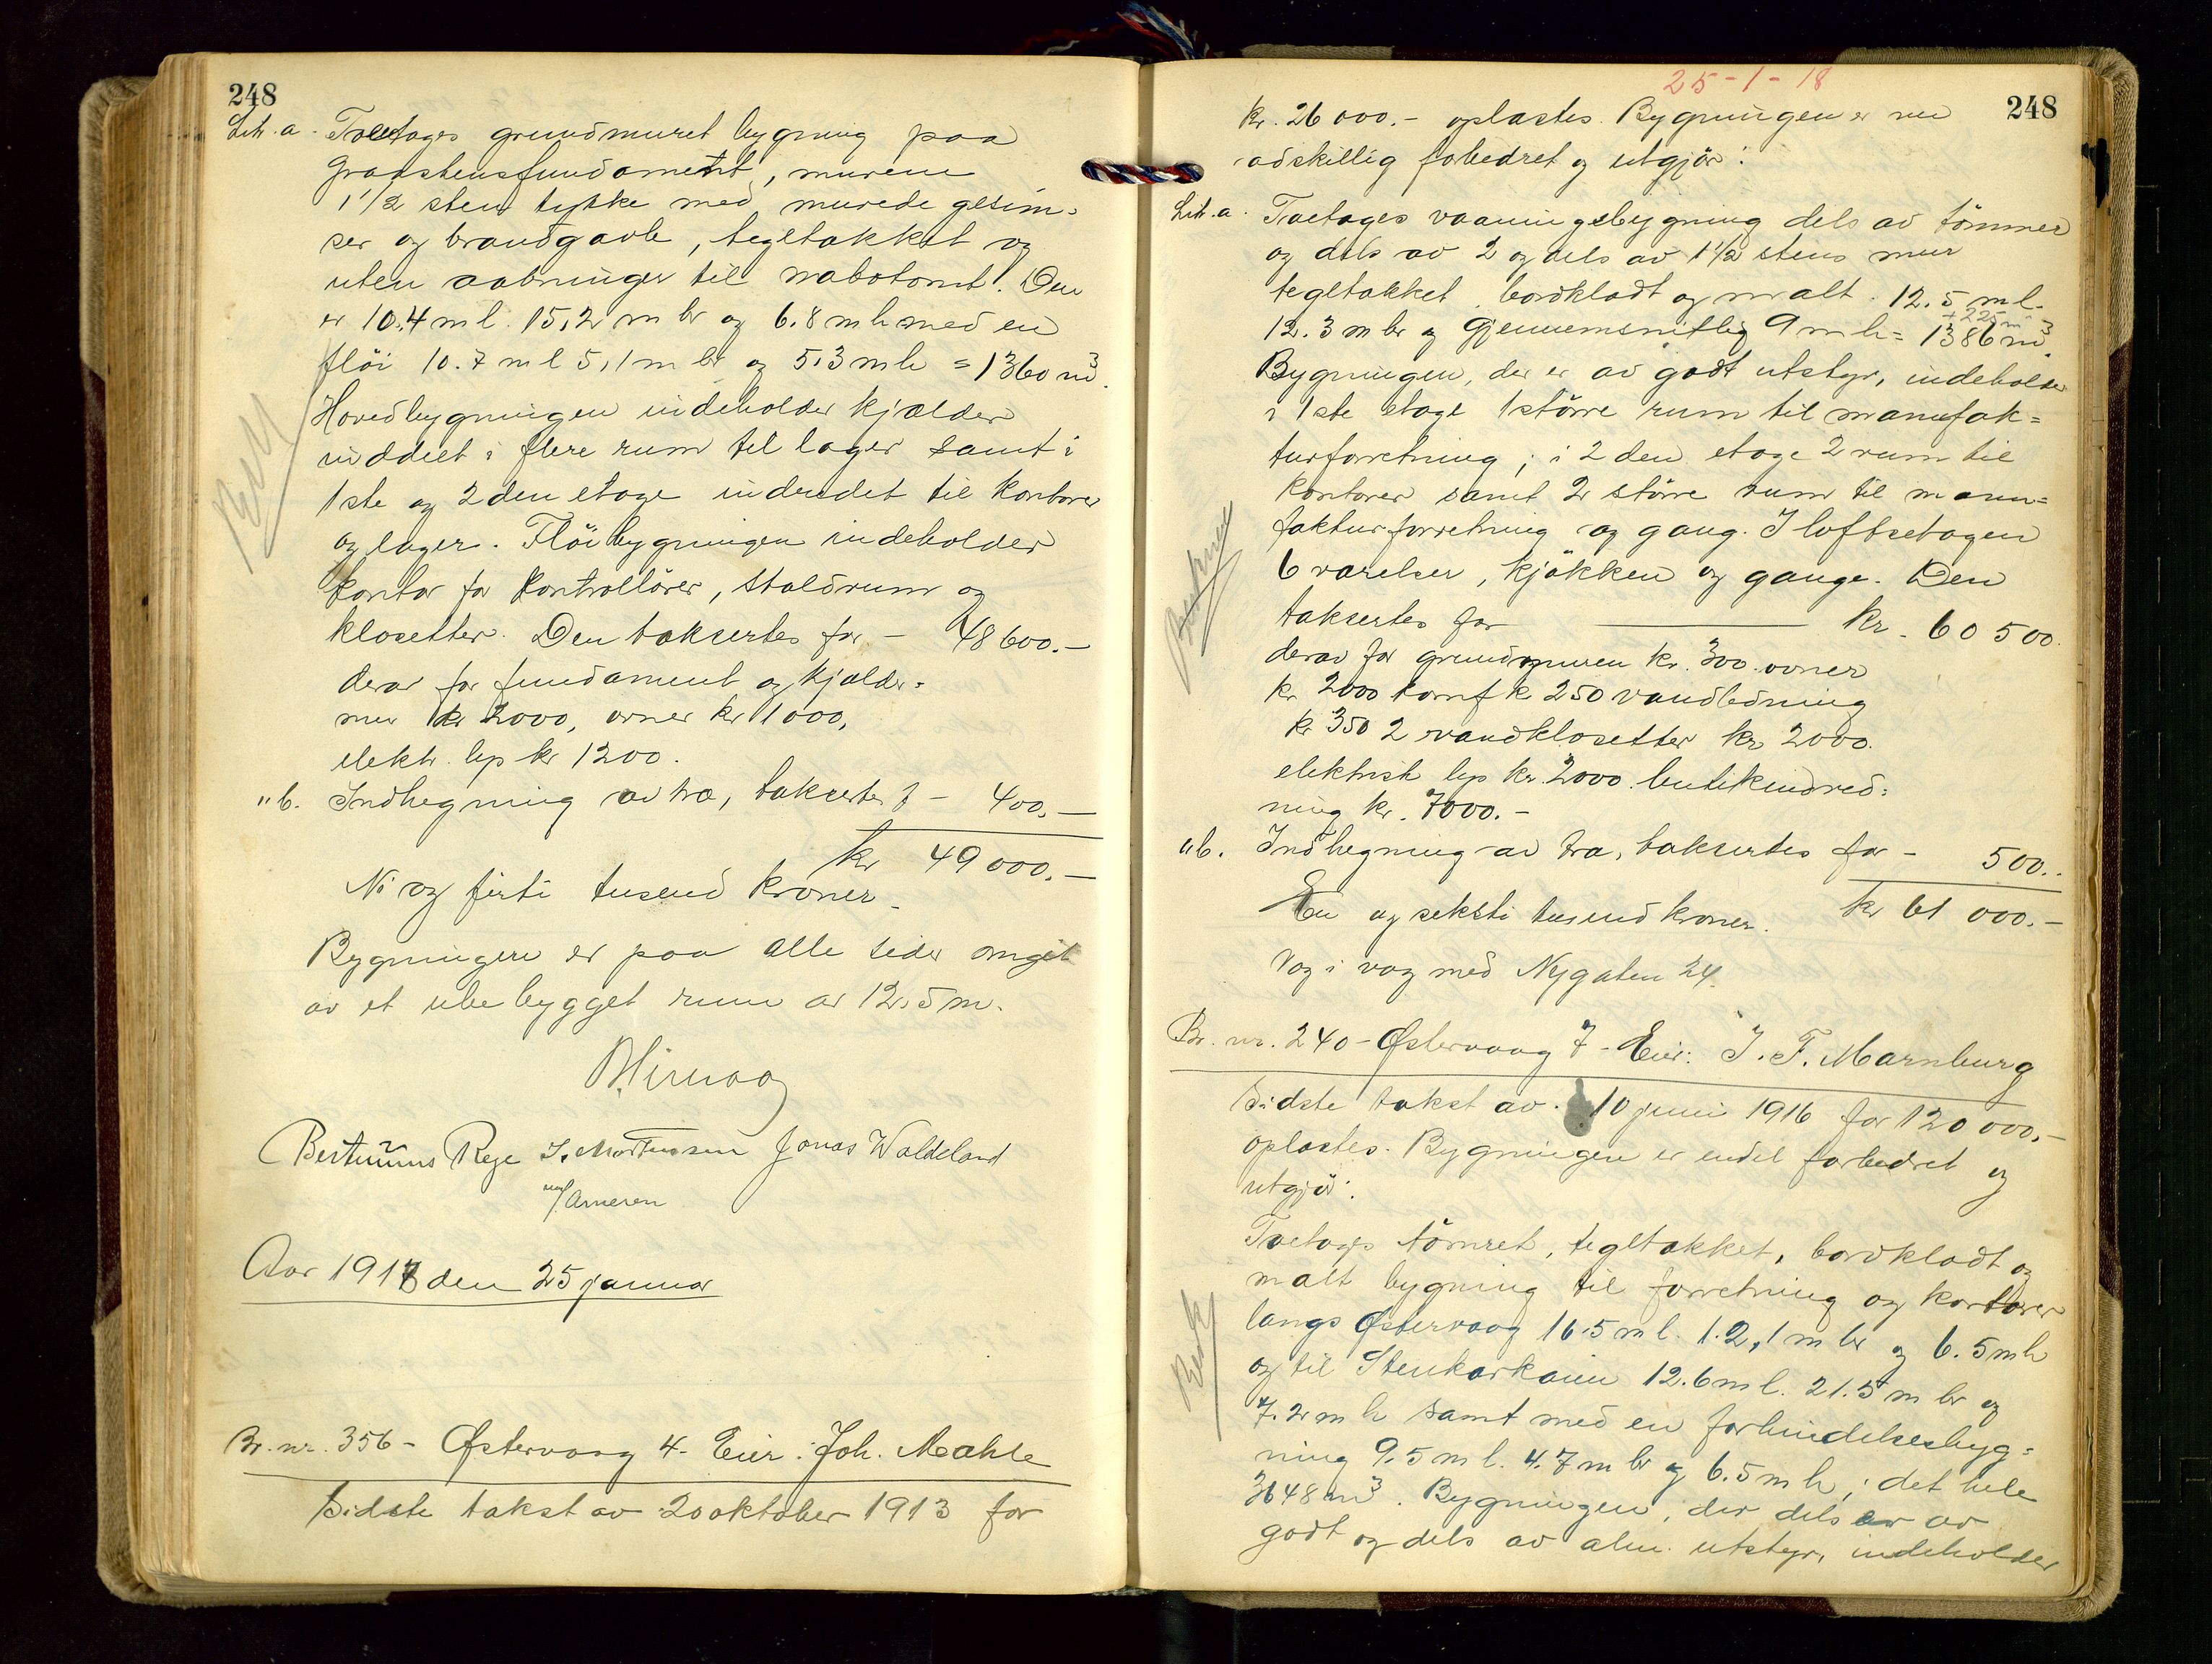 248
Litr. a. Toetages grundmuret bygning paa
graastensfundament, murene
1 1/2 sten tykke med murede gesim-
ser og brandgavle, tegltækket og
uten aabninger til nabotomt. Den
er 10.4 m l. 15,2 m br og 6.8 m h med en
fløi 10.7 m l 5,1 m br og 5,3 m h = 1360 m³.
Hovedbygningen indeholder kjælder
inddelt i flere rum til lager samt i
1ste og 2den etage indredet til kontorer
og lager. Fløibygningen indeholder
kontor for kontrollører, staldrum og
klosetter. Den takseres for - 48 600.-
derav for fundament og kjælder-
mur kr 2000, ovner kr 1000,
elektr. lys kr 1200.
" b. Indhegning av træ, takseres f - 400.-
kr 49 000.-
Ni og firti tusend kroner.
Bygningen er paa alle sider omgit
av et ubebygget rum av 12,5 m.
Bertinius Rege J. Mortensen Jonas Waldeland
Aar 1918 den 25 januar
Br. nr. 356 - Østervaag 4. Eier: Joh. Mæhle
Sidste takst av 20 oktober 1913 for
25-1-18
248
kr. 26 000.- oplæstes. Bygningen er nu
adskillig forbedret og utgjør:
Litr. a. Toetages vaaningsbygning dels av tømmer
og dels av 2 og dels av 1 1/2 stens mur
tegltækket, bordklædt og malt. 12.5 m l.
+ 225 m³
12.3 m br og gjennemsnitlig 9 m h = 1386 m³.
Bygningen, der er av godt utstyr, indeholder
i 1ste etage 1 større rum til manufak-
turforretning; i 2den etage 2 rum til
kontorer samt 2 større rum til manu-
fakturforretning og gang. I loftsetagen
6 værelser, kjøkken og gange. Den
takseres for kr. 60 500.
derav for grundmuren kr. 300. ovner
kr 2000 komf kr 250 vandledning
kr 350 2 vandklosetter kr 2000.
elektrisk lys kr. 2000. butikindred-
ning kr. 7000.-
" b. Indhegning av træ, takseres for - 500.-
kr 61 000.-
En og seksti tusend kroner.
Væg i væg med Nygaten 24.
Br. nr. 240 - Østervaag 7 - Eier: J. F. Marnburg
Sidste takst av 10 juni 1916 for 120 000.-
oplæstes. Bygningen er endel forbedret og
utgjør:
Toetages tømret, tegltækket, bordklædt og
malt bygning til forretning og kontorer
langs Østervaag 16.5 m l. 12,1 m br og 6.5 m h
og til Stenkarkaien 12.6 m l. 21.5 m br og
7.2 m h samt med en forbindelsesbyg-
ning 9.5 m l. 4.7 m br og 6.5 m h; det hele
3648 m³. Bygningen, der dels er av
godt og dels av alm. utstyr, indeholder